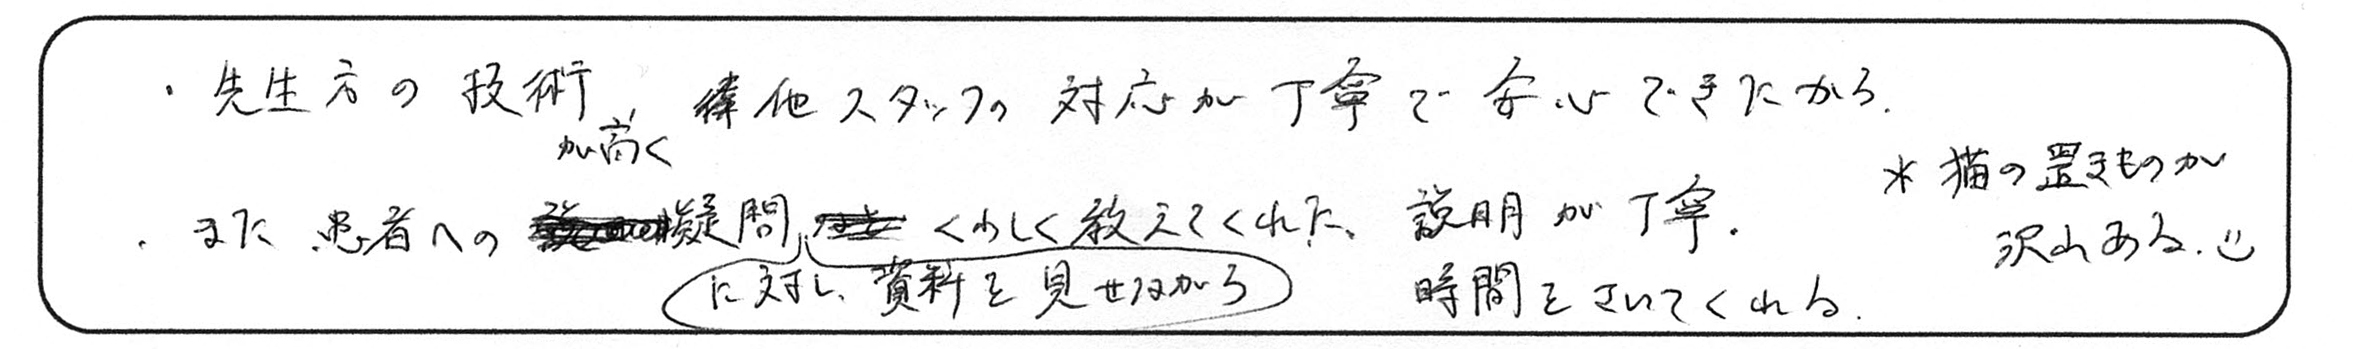 ・先生方の技術が高く、他スタッフの対応が丁寧で安心できたから.
・また患者への疑問に対し、資料を見せながらくわしく教えてくれた、説明が丁寧.
時間をさいてくれる.
*猫の置きものが
沢山ある.